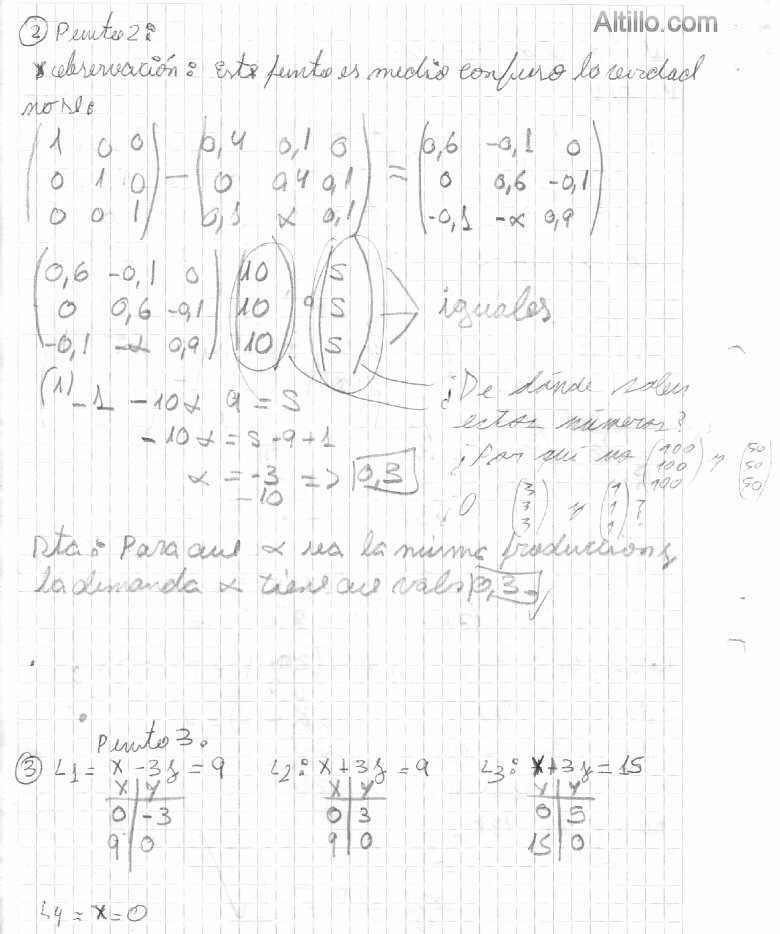 Altillo.com
② Punto 2:
* observación: Este punto es medio confuso la verdad
no se.
(1 0 0) - (0,4 0,1 0) = (0,6 -0,1 0)
(0 1 0) (0 0,4 0,1) (0 0,6 -0,1)
(0 0 1) (0,1 α 0,1) (-0,1 -α 0,9)
(0,6 -0,1 0) (10) (5)
(0 0,6 -0,1) (10) (5) iguales
(-0,1 -α 0,9) (10) (5)
-1 -10α 9 = 5
-10α = 5-9+1
α = -3/-10 => 0,3
¿De dónde salen
estos números?
¿Por qué no (100 100 100) y (50 50 50)
¿O (3 3 3) y (1 1 1)?
Rta: Para que α sea la misma produccion y
la demanda α tiene que valer 0,3.
Punto 3.
③ L1 = x - 3y = 9 L2: x + 3y = 9 L3: x + 3y = 15
x | y x | y x | y
0 | -3 0 | 3 0 | 5
9 | 0 9 | 0 15 | 0
L4 = x = 0